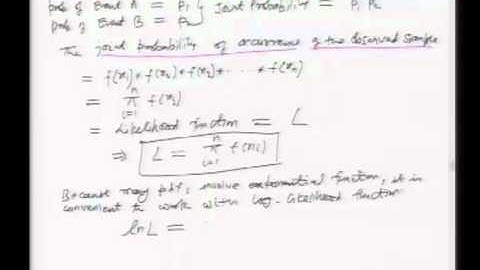 prob of Event A = P₁ } Joint Probability = P₁ P₂
prob of Event B = P₂
The joint probability of occurrence of the observed sample
= f(x₁) * f(x₂) * f(x₃) * ... * f(xₙ)
= π f(xᵢ)
i=1
n
= Likelihood function = L
⇒ L = π f(xᵢ)
i=1
n
Because many pdfs involve exponential function, it is
convenient to work with log-likelihood function
ln L =